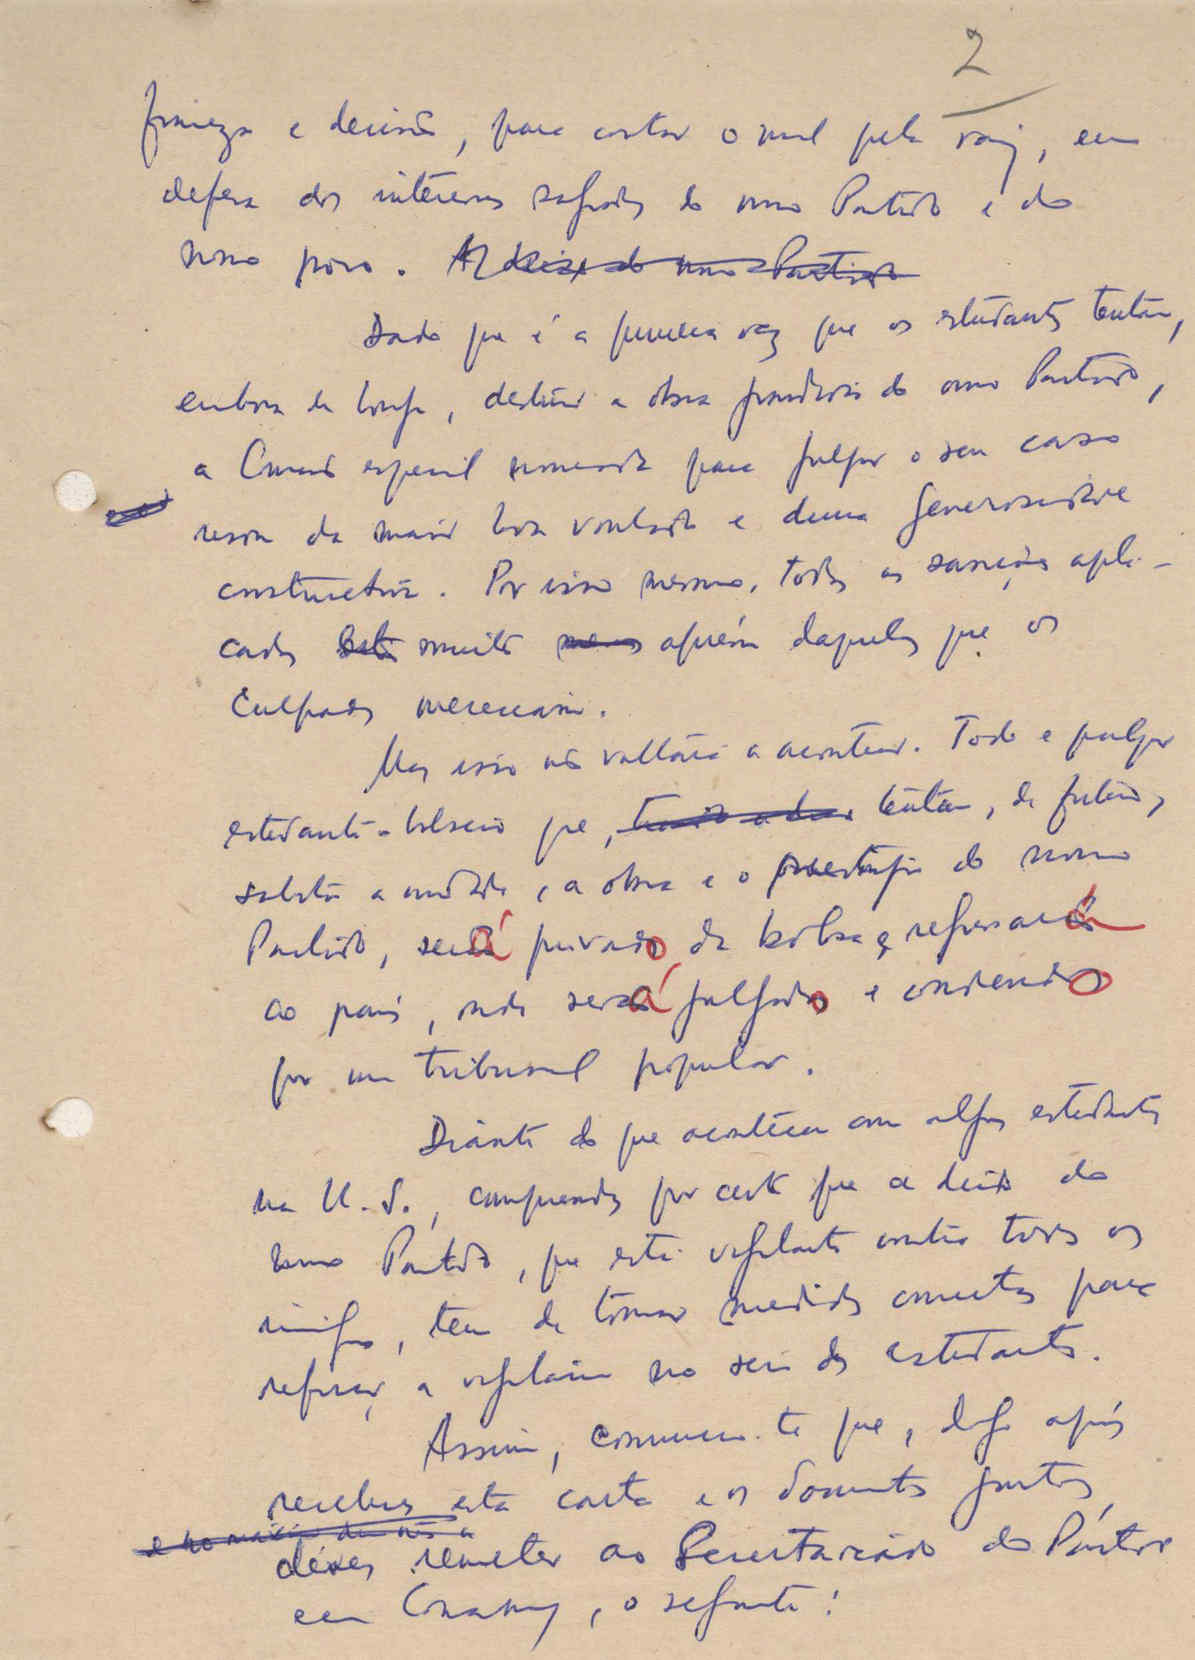 2
firmeza e decisão, para cortar o mal pela raiz, em
defesa dos interesses sagrados do nosso Partido e do
nosso povo. A direcção do nosso Partido
Dado que é a primeira vez que os estudantes tentam,
embora de longe, destruir a obra grandiosa do nosso Partido,
a Comissão especial nomeada para julgar o seu caso
usou da maior boa vontade e duma generosidade
construtiva. Por isso mesmo, todas as sanções apli-
cadas estão muito aquém daquelas que os
culpados mereceram.
Mas isso não voltará a acontecer. Todo e qualquer
estudante-bolseiro que, tentar, de futuro,
sabotar a unidade, a obra e o prestígio do nosso
Partido, será privado da bolsa e regressará
ao país, onde será julgado e condenado
por um tribunal popular.
Diante do que aconteceu com alguns estudantes
na U.S., compreendes por certo que a direcção do
nosso Partido, que está vigilante contra todos os
inimigos, tem de tomar medidas concretas para
reforçar a vigilância no seio dos estudantes.
Assim, comunico-te que, logo após
receberes esta carta e os documentos juntos,
e no máximo
deves remeter ao Secretariado do Partido
em Conakry, o seguinte: